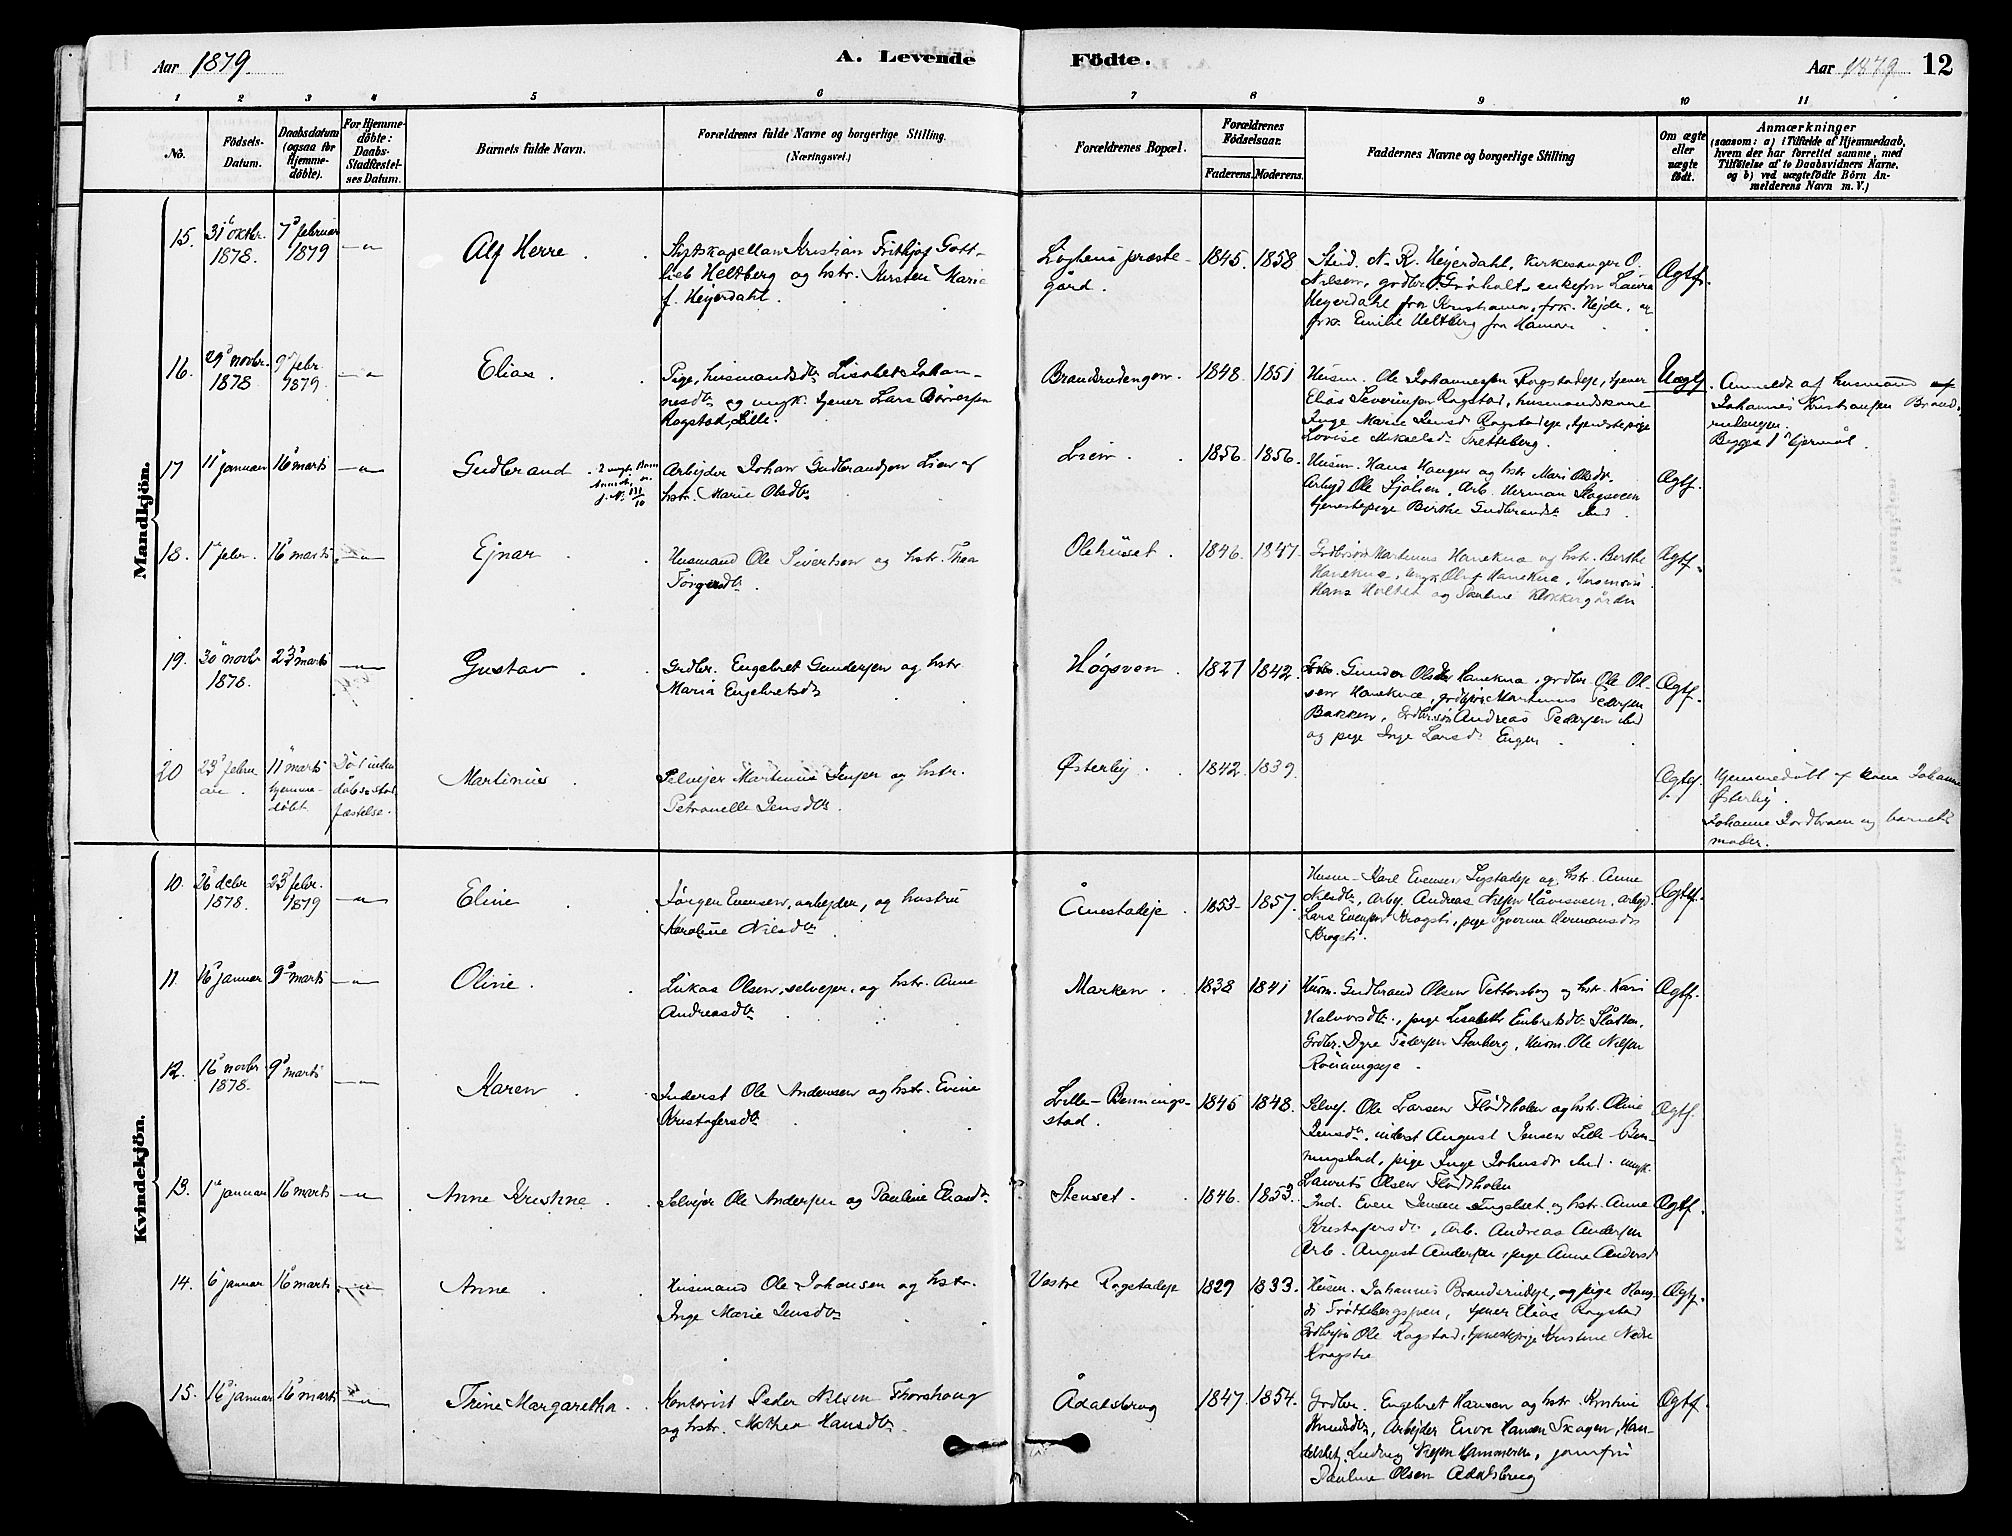 Aar 1879.
A. Levende
Fødte.
Aar 1879
12
1 2 3 4 5 6 7 8 9 10 11
No.
Fødsels-Datum.
Daabsdatum (ogsaa for Hjemme-døbte).
For Hjemme-døbte: Daabs-Stadfæstel-ses Datum.
Barnets fulde Navn.
Forældrenes fulde Navne og borgerlige Stilling.
(Næringsvei.)
Forældrenes Bopæl.
Forældrenes Fødselsaar.
Faderens. Moderens.
Faddernes Navne og borgerlige Stilling
Om ægte eller uægte født.
Anmærkninger
(saasom: a) i Tilfælde af Hjemmedaab, hvem der har forrettet samme, med Tilføielse af to Daabsvidners Navne, og b) ved uægtefødte Børn Anmelderens Navn m. V.)
Mandkjön.
15. 31 oktbr. 1878. 7 februar 1879 Alf Herre
Kristian Frithjof Gott-
lieb Heltberg og hstr. Kirsten Marie
f. Heyerdahl.
Løtens præste-
gård. 1845. 1858
Stud. N. R. Heyerdahl, kirkesanger O.
Nilsen, grdbr Grøholt, enkefru Laura
Heyerdahl fra Kristiania, frk. Hejde, og
frk. Emilie Heltberg fra Hamar
Ægtf.
16. 29 novbr. 1878 9 febr. 1879. Elias.
Pige, husmandsdtr. Lisabet Johan-
nesdtr og ungk. tjener Lars Børresen
Rogstad, Lille.
Brandsrudengen. 1848. 1851
Husm. Ole Johannesen Rogstadeje, tjener
Elias Severinsen Rogstad, husmandskone
Inge Marie Jensd. Rogstadeje, tjenestepige
Lovise Mikaelsd. Tretteberg.
Uægtf.
Anmeldt af husmand
Johannes Kristiansen Brand-
rudengen.
Begges 1ste lejermål.
17 11 januar 16 marts Gudbrand
Arbejder Johan Gudbrandsen Lien og
hstr. Marie Olsdtr
Lien. 1856. 1856.
Husm. Hans Haugen og hstr Mari Olsdtr.
Arbejd Ole Sjølien, Arb. Herman Skogsveen
tjenestepige Birthe Gudbrandsd.
Ægtf.
18. 1 febr. 16 marts Ejnar
Husmand Ole Sivertsen og hstr. Thea
Torgersdtr.
Olehuset. 1846. 1847.
Martinus Hanekna og hstr. Berthe
Hanekna, ungk Oluf Hanekna,
Hans Holtet og Pauline Klokkergården
Ægtf.
19. 30 novbr 1878. 23 marts Gustav
Grdbr. Engebret Gundersen og hstr.
Maria Engebretsdtr
Høgsven. 1827 1842.
Gunder Olsen Hanekna, grdbr Ole Ol-
sen Hanekna, Martinus Pedersen
Bakken, Andreas Pedersen
og pige Inge Larsd. Engen.
Ægtf.
20 23 februar. 11 marts hjemme-døbt. Død inden dåbs stad-fæstelse.
Martinus
Selvejer Martinus Jensen og hstr.
Petronelle Jensdtr.
Østerby. 1842. 1839.
Ægtf.
Hjemmedøbt af kone Johanne
Østerby.
Johanne Nordbraen og barnets
moder.
Kvindekjön.
10. 26 debr 1878. 23 febr. 1879 Eline
Jørgen Evensen, arbejder, og hustru
Karoline Nilsdtr
Ånestadeje. 1853- 1857.
Husm. Karl Evensen og hstr. Anne
Nilsdtr, Arbj. Andreas Nilsen, arbejd.
Lars Evensen Krogsti, pige Hermansdtr
Krogsti.
Ægtf.
11. 16 januar 9 marts Oline.
Lukas Olsen, selvejer, og hstr. Anne
Andreasdtr
Marken. 1838 1841
Husm. Gudbrand Olsen Pettersborg og hstr. Kari
Halvorsdtr., pige Lisabeth Embretsdtr Slåtten,
Grdbr. Dyre Pedersen, Husm. Ole Nilsen
Rønningseje.
Ægtf.
12. 16 novbr 1878. 9 marts Karen
Inderst Ole Andersen og hstr. Evine
Kristofersdtr
Lille-Benningstad. 1845 1848.
Selvej. Ole Larsen Flodsholen og hstr. Oline
Jensdtr, inderst August Jensen Lille-Ben-
ningstad, pige Inge Johnsdtr. ungk.
Laurits Olsen Flodsholen
Ægtf.
13. 1 januar 16 marts Anne Kristine.
Selvejer Ole Andersen og Pauline Eliasdtr.
Stenset. 1846. 1853.
Ind. Even Jensen Engelset og hstr. Anne
Kristofersdtr, Arb. Andreas Andersen
Arb. August Andersen, pige Anne Andersd
Ægtf.
14. 6 januar 16 marts Anne
Husmand Ole Johansen og hstr.
Inge Marie Jensdtr
Vestre Rogstadeje 1829 1833.
Husm. Johannes Brandsrudeje, og pige
Trøttebergseen, tjener Elias Rogstad
Ole Rogstad, tjenestepige Kristine Nedre
Krogstie
Ægtf.
15. 16 januar 16 marts Trine Margaretha.
Kontorist Peder Nilsen Thorshaug
og hstr. Mathea Hansdtr.
Ådalsbrug 1847. 1854.
Grdbr. Engebret Hansen og hstr. Kristine
Knudsdtr, Arbejder Even Hansen Skogen, Han-
delsbetj. Ludvig Nilsen Hammeren, jomfru
Pauline Olsen Ådalsbrug
Ægtf.